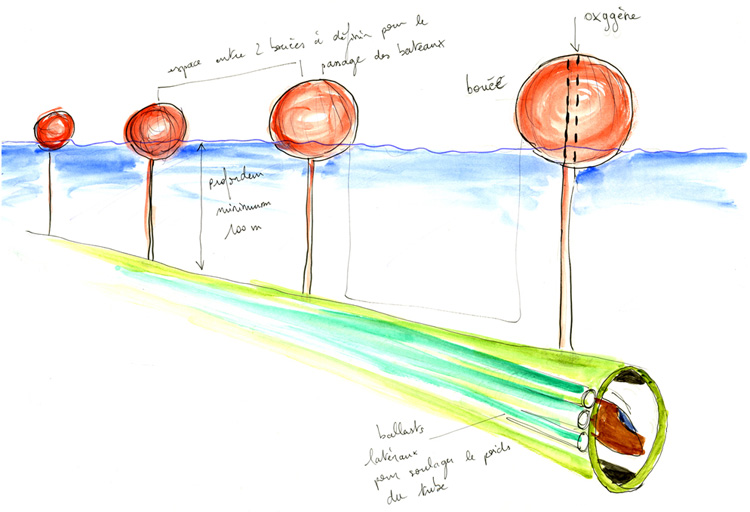 oxygène
espace entre 2 bouées à définir pour le
passage des bateaux
bouée
profondeur
minimum
100 m
ballasts
latéraux
pour soulager le poids
du tube